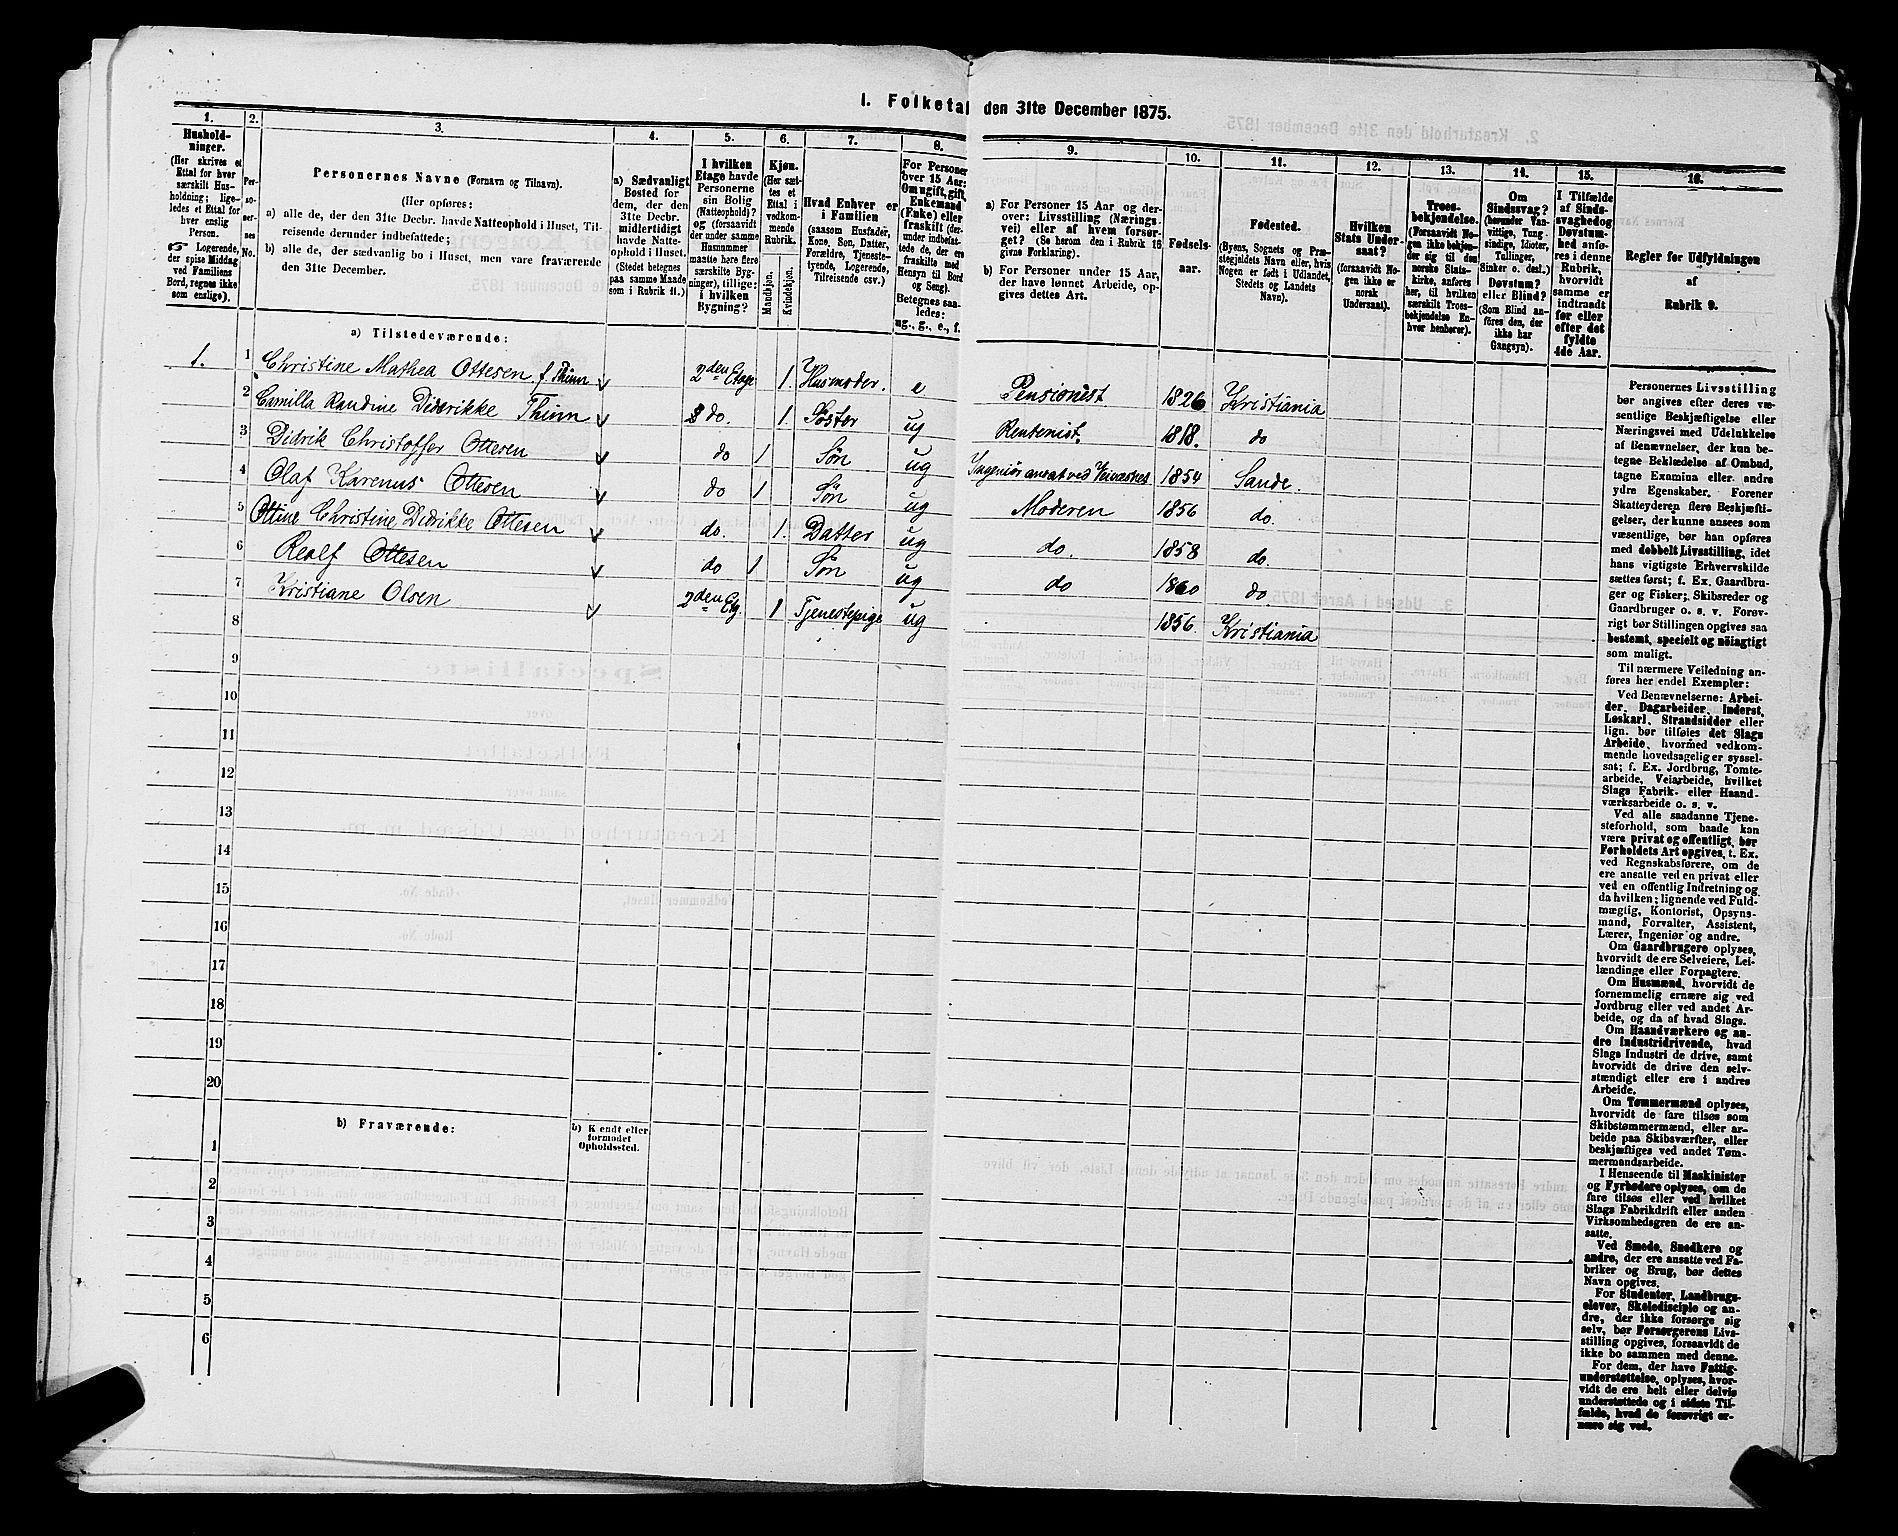 I. Folketal den 31te December 1875.
1. 2. 3. 4. 5. 6. 7. 8. 9. 10. 11. 12. 13. 14. 15. 16.
Husholdninger.
(Her skrives et
Ettal for hver
særskilt Husholdning;
ligeledes
et Ettal for
hver enslig
Person.
Logerende,
der spise Middag
ved Familiens
Bord, regnes ikke
som enslige).
Personernes
No.
Personernes Navne (Fornavn og Tilnavn).
(Her opføres:
a) alle de, der den 31te Decbr. havde Natteophold i Huset, Tilreisende
derunder indbefattede;
b) alle de, der sædvanlig bo i Huset, men vare fraværende
den 31te December.
a) Sædvanligt
Bosted for
dem, der den
31te Decbr.
midlertidigt
havde Natteophold
i Huset.
(Stedet betegnes
paa samme Maade
som i Rubrik 11.)
I hvilken
Etage havde
Personerne
sin Bolig
(Natteophold)?
og (forsaavidt
der under samme
Husnummer
maatte være flere
særskilte Bygninger),
tillige:
i hvilken
Bygning?
Kjøn.
(Her sættes
et
Ettal i
vedkommende
Rubrik.
Mandkjøn.
Kvindekjøn.
Hvad Enhver er
i Familien
(saasom Husfader,
Kone, Søn, Datter,
Forældre, Tjenestetyende,
Logerende,
Tilreisende osv.)
For Personer
over 15 Aar:
Om ugift, gift,
Enkemand
(Enke) eller
fraskilt (derunder
indbefattede
de, der ere
fraskilte med
Hensyn til Bord
og Seng).
Betegnes saaledes:
ug., g., e., f.
a) For Personer 15 Aar og derover:
Livsstilling (Næringsvei)
eller af hvem forsørget?
(Se herom den i Rubrik 16
givne Forklaring).
b) For Personer under 15 Aar,
der have lønnet Arbeide, opgives
dettes Art.
Fødselsaar.
Fødested.
(Byens, Sognets og Præstegjeldets
Navn eller, hvis
Nogen er født i Udlandet,
Stedets og Landets
Navn).
Hvilken
Stats Undersaat?
(forsaavidt Nogen
ikke er
norsk
Undersaat).
Troesbekjendelse.
(Forsaavidt Nogen
ikke bekjender
sig til den
norske Statskirke,
anføres
her, til hvilken
særskilt Troesbekjendelse
Enhver
henhører).
Om
Sindssvag?
(herunder Vanvittige,
Tungsindige,
Idioter,
Tullinger,
Sinker o. desl.)
Døvstum?
eller Blind?
(Som Blind anføres
den, der
ikke har
Gangsyn).
I Tilfælde
af Sindssvaghed
og
Døvstumhed
anføres
i denne
Rubrik,
hvorvidt
samme er
indtraadt
før eller
efter det
fyldte
4de Aar.
Regler for Udfyldningen
af
Rubrik 9.
a) Tilstedeværende:
1. 1 Christine Mathea Ottesen f. Thinn 2den Etage 1. Husmoder. e Pensionist 1826 Kristiania
2 Camilla Randine Didrikke Thinn do. 1. Søster ug Rentenist. 1818. do
3 Didrik Christoffer Ottesen do 1 Søn ug Ingeniør ansat ved 1854 Sande.
4 Olaf Karenus Ottesen do 1 Søn ug Moderen 1856 do.
5 Ottine Christine Didrikke Ottesen do. 1. Datter ug do. 1858 do.
6 Realf Ottesen do 1 Søn ug do 1860 do.
7 Kristiane Olsen 2den Etg. 1 Tjenestepige ug 1856. Kristiania
8
9
10
11
12
13
14
15
16
17
18
19
20
b) Fraværende:
b) Kjendt eller
formodet
Opholdssted.
1
2
3
4
5
6
Personernes Livsstilling
bør angives efter deres væsentlige
Beskjæftigelse eller
Næringsvei med Udelukkelse
af Benævnelser, der kun betegne
Beklædelse af Ombud,
tagne Examina eller andre
ydre Egenskaber. Forener
Skatteyderen flere Beskjæftigelser,
der kunne ansees som
væsentlige, bør han opføres
med dobbelt Livsstilling, idet
hans vigtigste Erhvervskilde
sættes først; f. Ex. Gaardbruger
og Fisker; Skibsreder og
Gaardbruger o. s. v. Forøvrigt
bør Stillingen opgives saa
bestemt, specielt og nøiagtigt
som muligt.
Til nærmere Veiledning anføres
her endel Exempler:
Ved Benævnelserne: Arbeider,
Dagarbeider, Inderst,
Løskarl, Strandsidder eller
lign. bør tilføies det Slags
Arbeide, hvormed vedkommende
hovedsagelig er sysselsat;
f. Ex. Jordbrug, Tomtearbeide,
Veiarbeide, hvilket
Slags Fabrik- eller Haandværksarbeide
o. s. v.
Ved alle saadanne Tjenesteforhold,
som baade kan
være privat og offentligt, bør
Forholdets Art opgives, t. Ex.
ved Regnskabsførere, om de
ere ansatte ved en privat eller
ved en offentlig Indretning og
da hvilken; lignende ved Fuldmægtig,
Kontorist, Opsynsmand,
Forvalter, Assistent,
Lærer, Ingeniør og andre.
Om Gaardbrugere oplyses,
hvorvidt de ere Selveiere, Leilændinge
eller Forpagtere.
Om Husmænd, hvorvidt de
fornemmelig ernære sig ved
Jordbrug eller ved andet Arbeide,
og da af hvad Slags.
Om Haandværkere og andre
Industridrivende, hvad
Slags Industri de drive, samt
hvorvidt de drive den selvstændigt
eller ere i andres
Arbeide.
Om Tømmermænd oplyses,
hvorvidt de fare tilsøs som
Skibstømmermænd, eller arbeide
paa Skibsværfter, eller
beskjæftiges ved andet Tømmermandsarbeide.
I Henseende til Maskinister
og Fyrbødere oplyses, om de
fare tilsøs eller ved hvilket
Slags Fabrikdrift eller anden
Virksomhedsgren de ere ansatte.
Ved Smede, Snedkere og
andre, der ere ansatte ved Fabriker
og Brug, bør dettes
Navn opgives.
For Studenter, Landbrugselever,
Skoledisciple og andre,
der ikke forsørge sig
selv, bør Forsørgerens Livsstilling
opgives, forsaavidt de
ikke bo sammen med denne.
For dem, der have Fattigunderstøttelse,
oplyses, hvorvidt
de ere helt eller delvis
understøttede og i sidste Tilfælde,
hvad de forøvrigt ernære
sig ved.